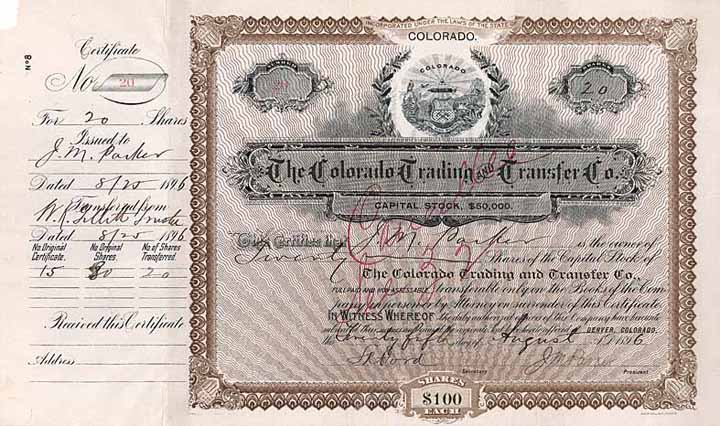 No 8
Certificate
No 20
For 20 Shares
Issued to
J. M. Parker
Dated 8/25 1896
Transferred from
Dated 8/25 1896
No. Original Certificate. No. Original Shares. No. of Shares Transferred.
15 80 20
Received this Certificate
Address
INCORPORATED UNDER THE LAWS OF THE STATE OF
COLORADO.
NUMBER
20
COLORADO
SHARES
20
The Colorado Trading and Transfer Co.
CAPITAL STOCK, $50,000.
This Certifies that J. M. Parker is the owner of
Twenty Shares of the Capital Stock of
The Colorado Trading and Transfer Co.,
FULL PAID AND NON-ASSESSABLE transferable only on the Books of the Com-
pany in person or by Attorney on surrender of this Certificate.
IN WITNESS WHEREOF the duly authorized officers of this Company have hereunto
DENVER, COLORADO.
the twenty fifth day of August 1896
Secretary President
SHARES
$100
EACH